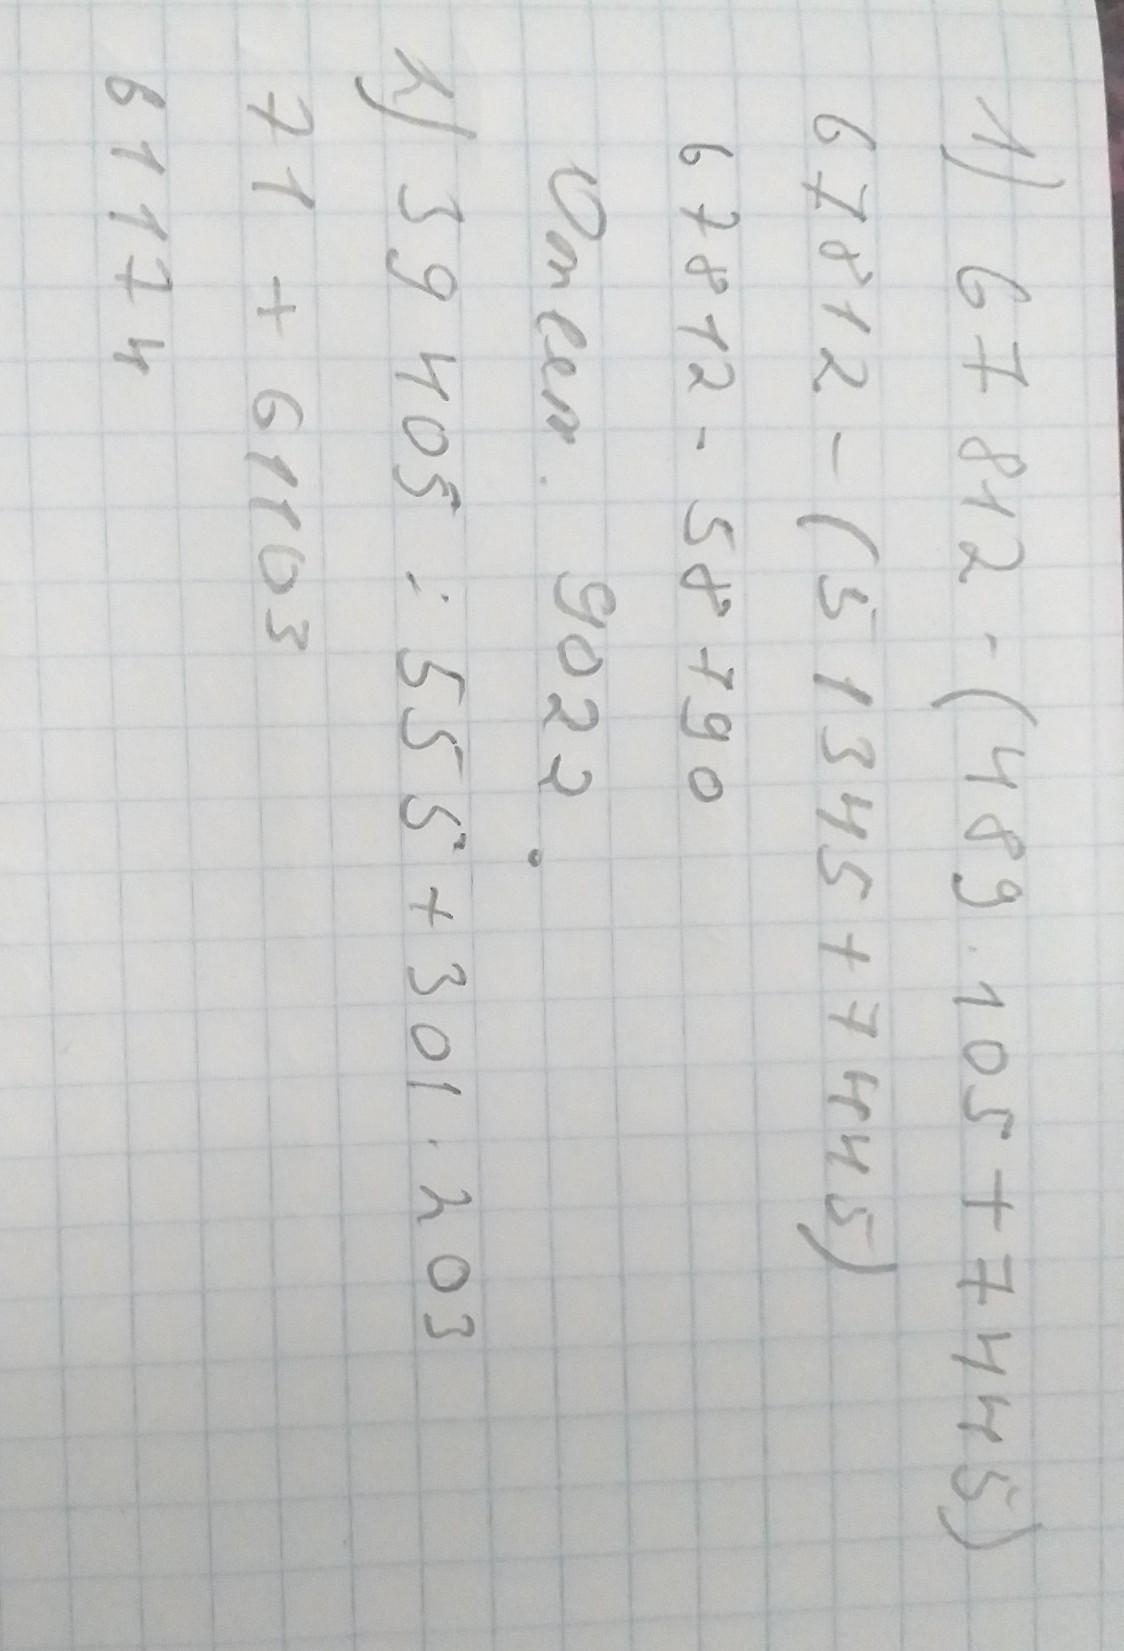 1) 67 812 - (489 · 105 + 7445)
67812 - (51345 + 7445)
67812 - 58790
Ответ. 9022.
2) 39 405 : 555 + 301 · 203
71 + 61103
61174